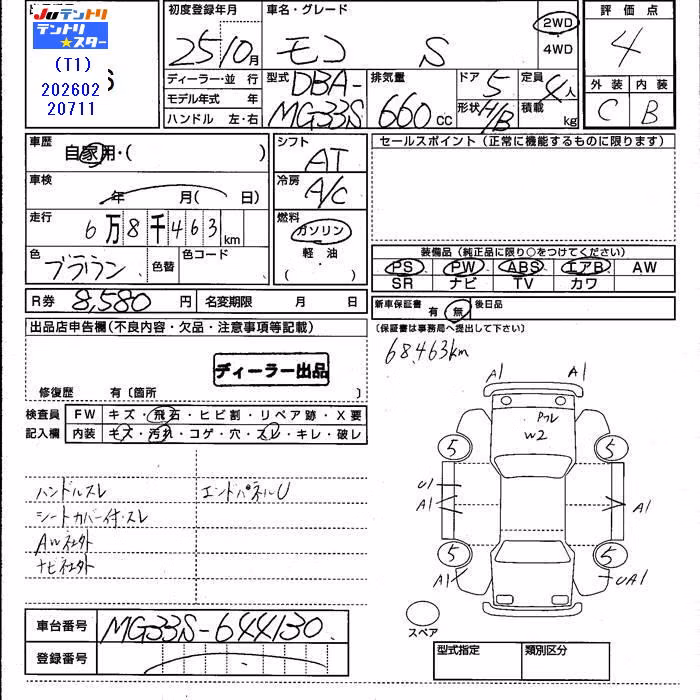 JUテントリ
テントリ
★スター
(T1)
202602
20711
S
初度登録年月
25 10 月
車名・グレード
モコ S
2WD
4WD
評価点
4
外装 内装
C B
ディーラー・並 行
モデル年式 年
ハンドル 左・右
型式
DBA-
MG33S
排気量
660 cc
ドア 5
形状 H/B
定員 4人
積載 kg
車歴
自家用・( )
車検
年 月( 日)
走行
6万8千463 km
色
ブラウン
色替
色コード
シフト
AT
冷房
A/C
燃料
ガソリン
軽・油
( )
セールスポイント(正常に機能するものに限ります)
装備品(純正品に限り○をつけてください)
PS PW ABS エアB AW
SR ナビ TV カワ
R券 8,580 円 名変期限 月 日
新車保証書 有 無 後日品
(保証書は事務局へ提出して下さい)
68,463km
出品店申告欄(不良内容・欠品・注意事項等記載)
ディーラー出品
修復歴 有〔箇所 〕
検査員
記入欄
FW キズ・飛石・ヒビ割・リペア跡・X要
内装 キズ・汚れ・コゲ・穴・スレ・キレ・破レ
ハンドルスレ
エンドパネルU
シートカバー付・スレ
AW社外
ナビ社外
A1 A1
Pフレ
W2
5 5
U1
A1 A1
5 5
A1 UA1
スペア
車台番号 MG33S-644130
登録番号
型式指定 類別区分